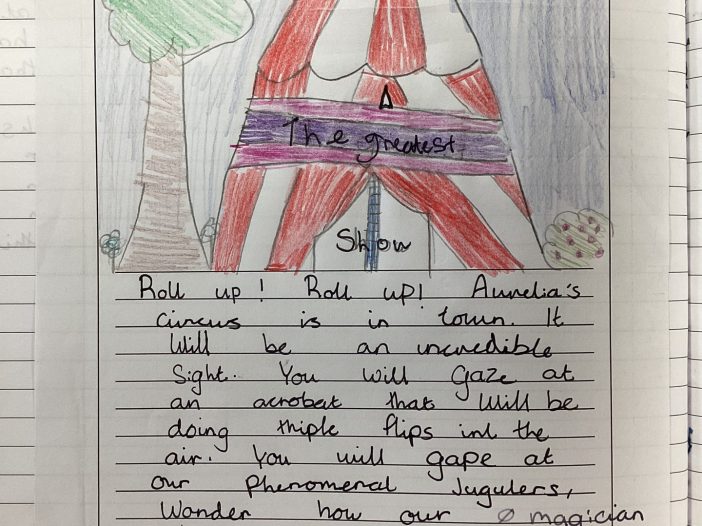 The greatest
Show
Roll up! Roll up! Aurelia's
circus is in town. It
Will be an incredible
Sight. You will gaze at
an acrobat that Will be
doing thiple flips int the
air. You will gape at
our Phenomenal Jugulers,
Wonder how our magician